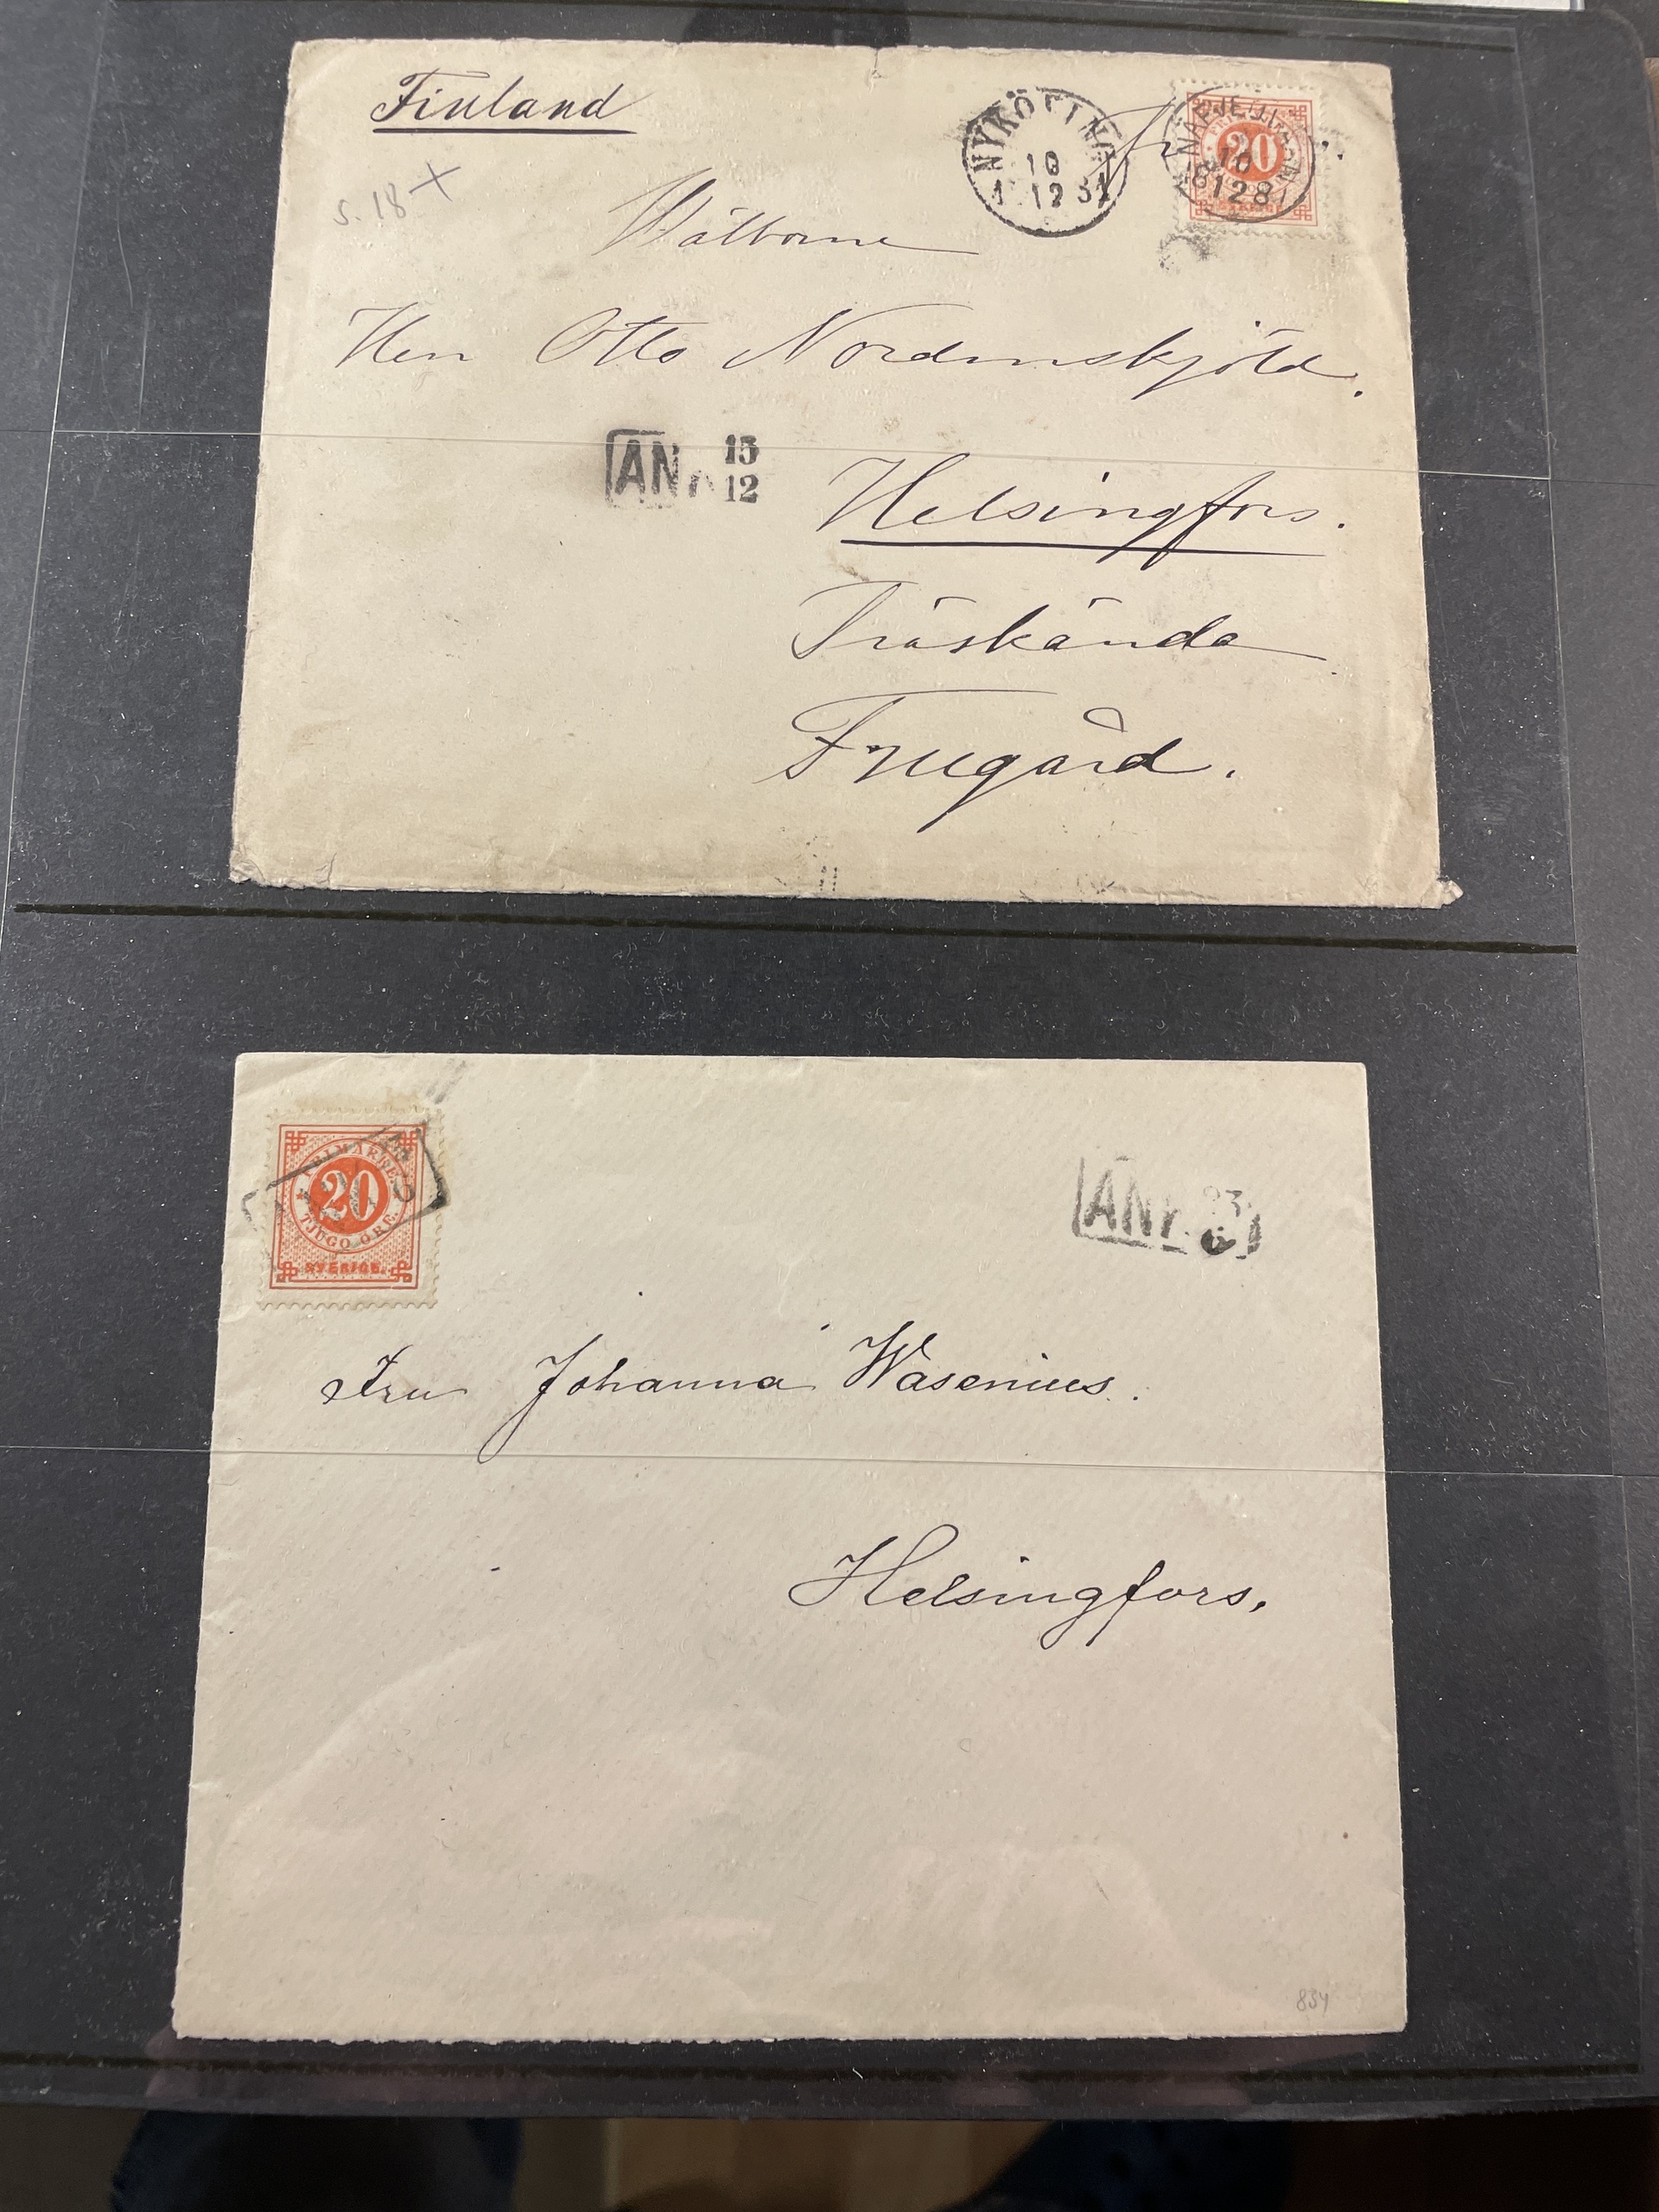 Finland
NYKÖPING
10
12 81
20
10
1281
s. 18 X
Välborne
Herr Otto Nordenskjöld.
ANK 15
12
Helsingfors.
Träskända
Frugård.
FRIMÄRKE
20
TJUGO ÖRE.
SVERIGE.
ANK 23
6
Fru Johanna Wasenius.
Helsingfors.
854